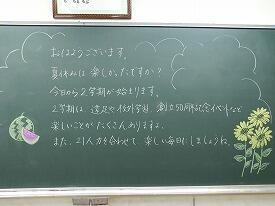 おはようございます。
夏休みは楽しかったですか?
今日から2学期が始まります。
2学期は、遠足や校外学習、創立50周年記念イベントなど
楽しいことがたくさんありますよ。
また、21人力を合わせて 楽しい毎日にしましょうね。